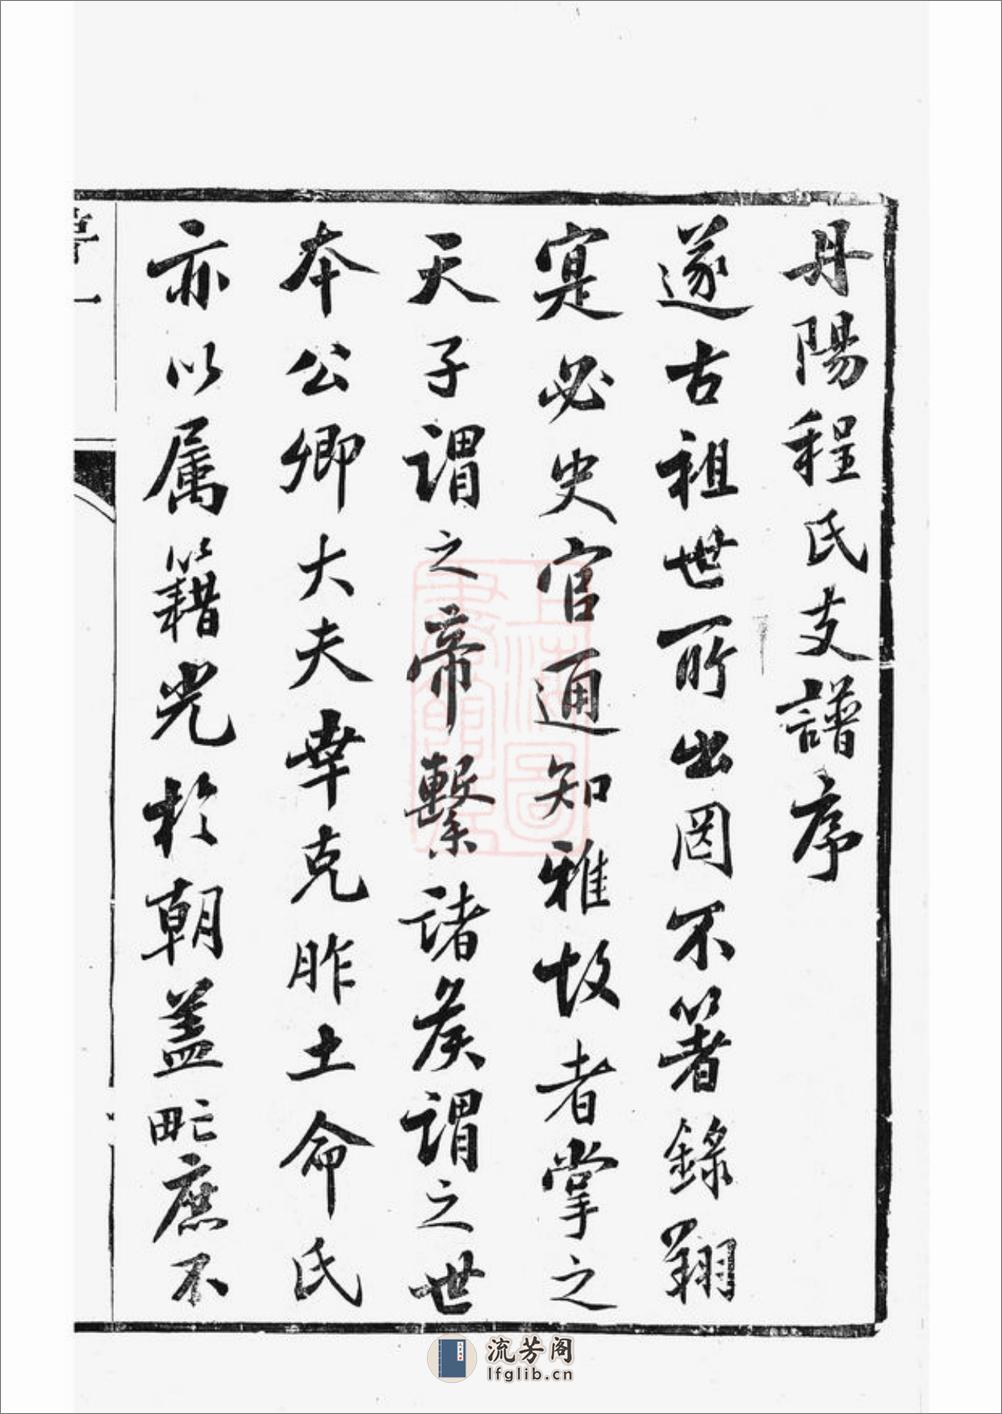 丹陽程氏支譜序
遂古祖世所出罔不著錄翔
寔必史官通知雅故者掌之
天子謂之帝繫諸矦謂之世
本公卿大夫幸克胙土命氏
亦以属籍光於朝葢甿庶不
流芳阁
lfglib.cn